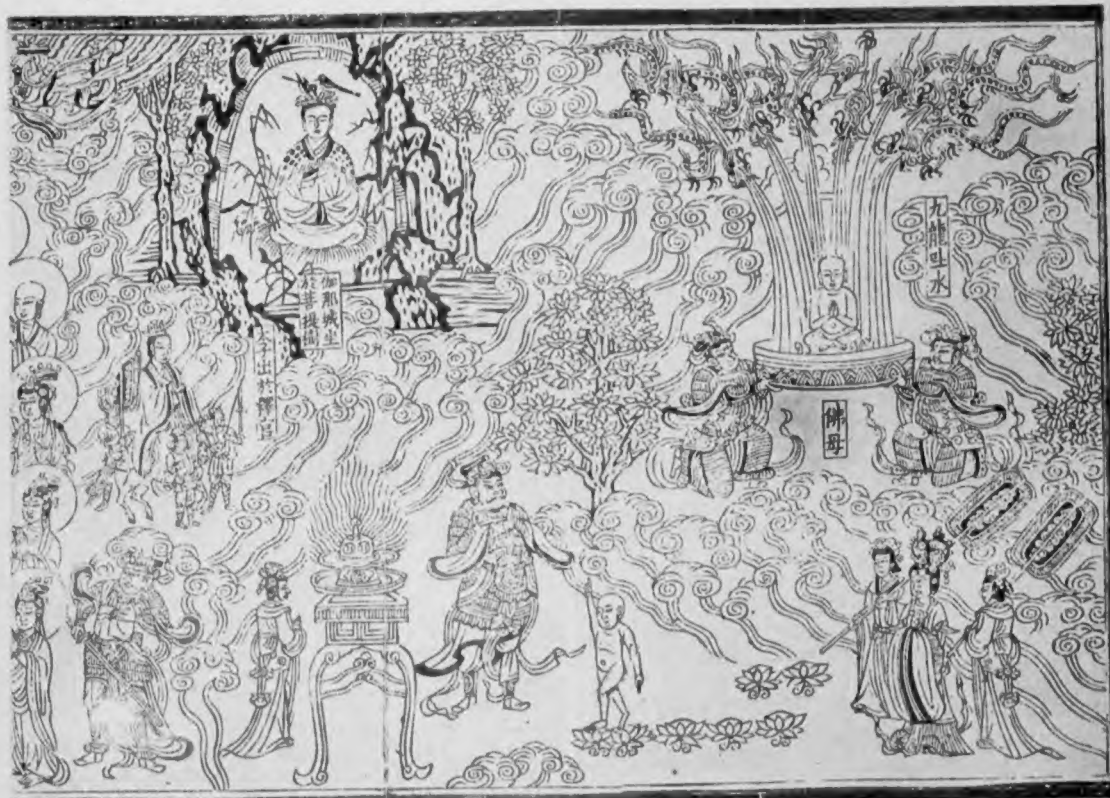 九龍吐水
佛母
伽耶城坐
於菩提場
子出於釋宮